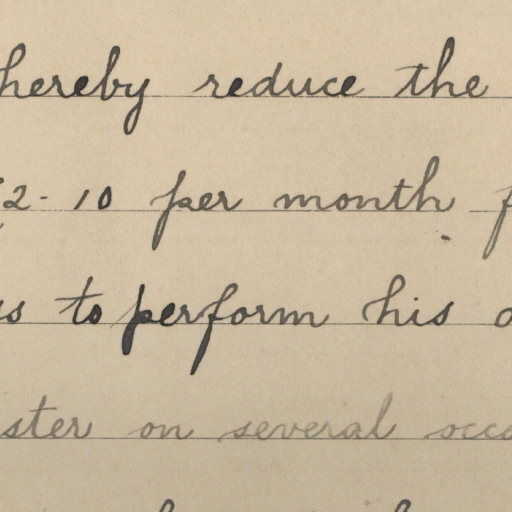 hereby reduce the
2-10 per month
to perform his
on several